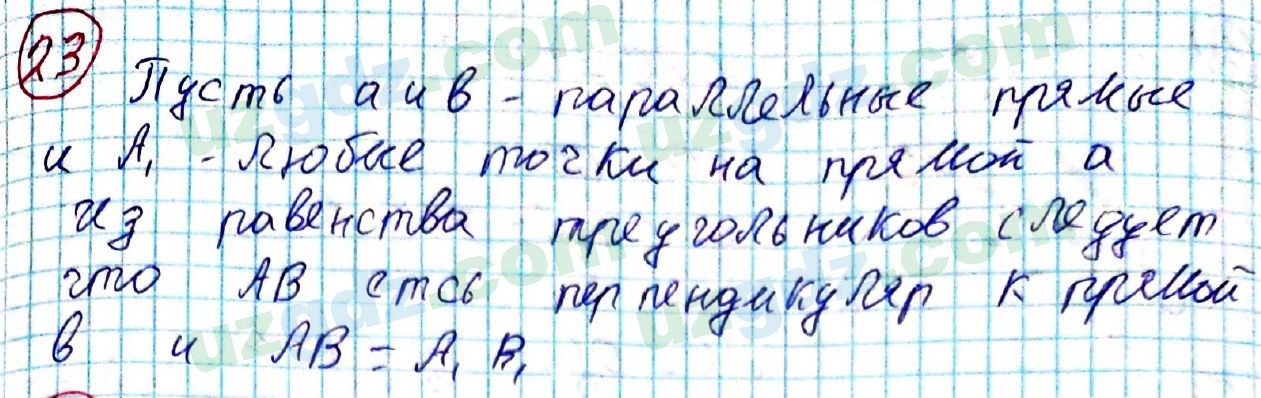 23 Пусть а и в - параллельные прямые
и А₁ - любые точки на прямой а
из равенства треугольников следует
что АВ етсь перпендикуляр к прямой
в и АВ = А₁ В₁